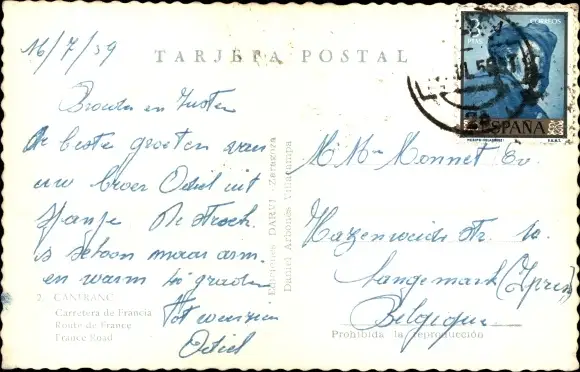 16/7/59
TARJETA POSTAL
CORREOS
3
PTAS
ESPAÑA
Broeder en Zuster
De beste groeten van
uw broer Odiel uit
Spanje De streek
is schoon maar arm.
en warm 40 graden
Tot weerziens
Odiel
Ediciones DARVI - Zaragoza
Daniel Arbonés Villacampa
M. Mme Monnet Ov.
Hazenweide Str. 10.
Langemark (Ypres)
Belgique
2. CANFRANC
Carretera de Francia
Route de France
France Road
Prohibida la reproducción